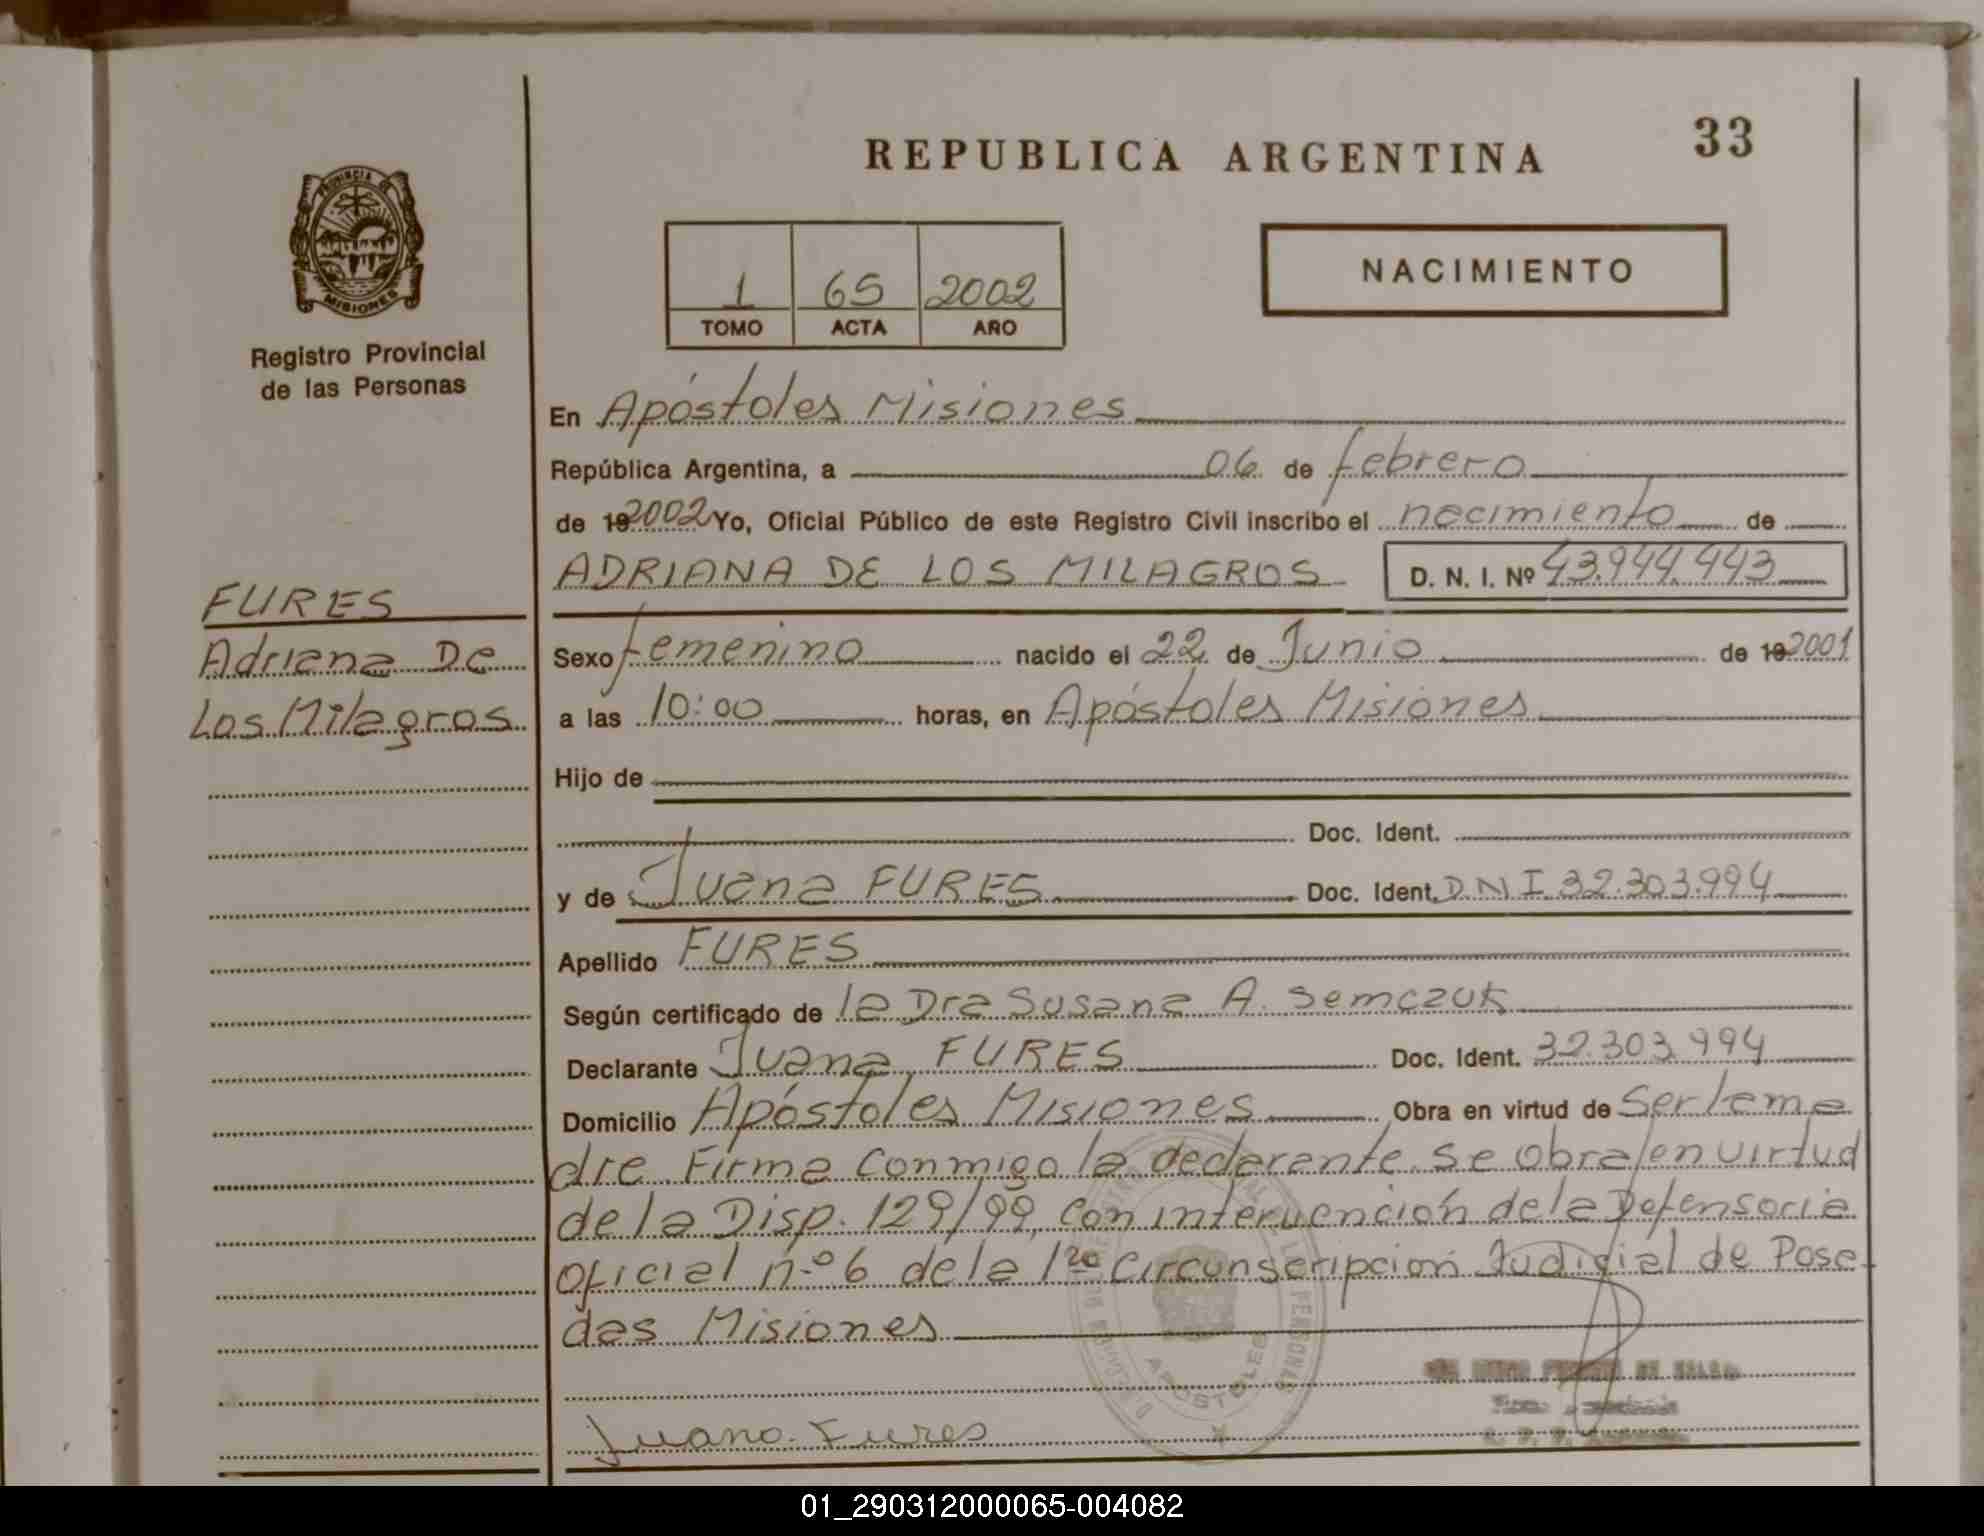 REPUBLICA ARGENTINA
33
PROVINCIA DE
MISIONES
Registro Provincial
de las Personas
1 65 2002
TOMO ACTA AÑO
NACIMIENTO
En Apóstoles Misiones
República Argentina, a 06 de febrero
de 19 2002 Yo, Oficial Público de este Registro Civil inscribo el nacimiento de
ADRIANA DE LOS MILAGROS D. N. I. Nº 43.944.443
FURES
Adriana De
Los Milagros
Sexo femenino nacido el 22 de Junio de 19 2001
a las 10:00 horas, en Apóstoles Misiones
Hijo de
Doc. Ident.
y de Juana FURES Doc. Ident. D.N.I 32.303.994
Apellido FURES
Según certificado de la Dra Susana A. Semczuk
Declarante Juana FURES Doc. Ident. 32.303.994
Domicilio Apóstoles Misiones Obra en virtud de Ser la ma
dre. Firma conmigo la declarante. Se obra en virtud
de la Disp. 129/99, con intervención de la Defensoria
oficial n.º 6 de la 1ra circunscripción Judicial de Posa
das Misiones
APOSTOLES
Juana Fures
01_290312000065-004082